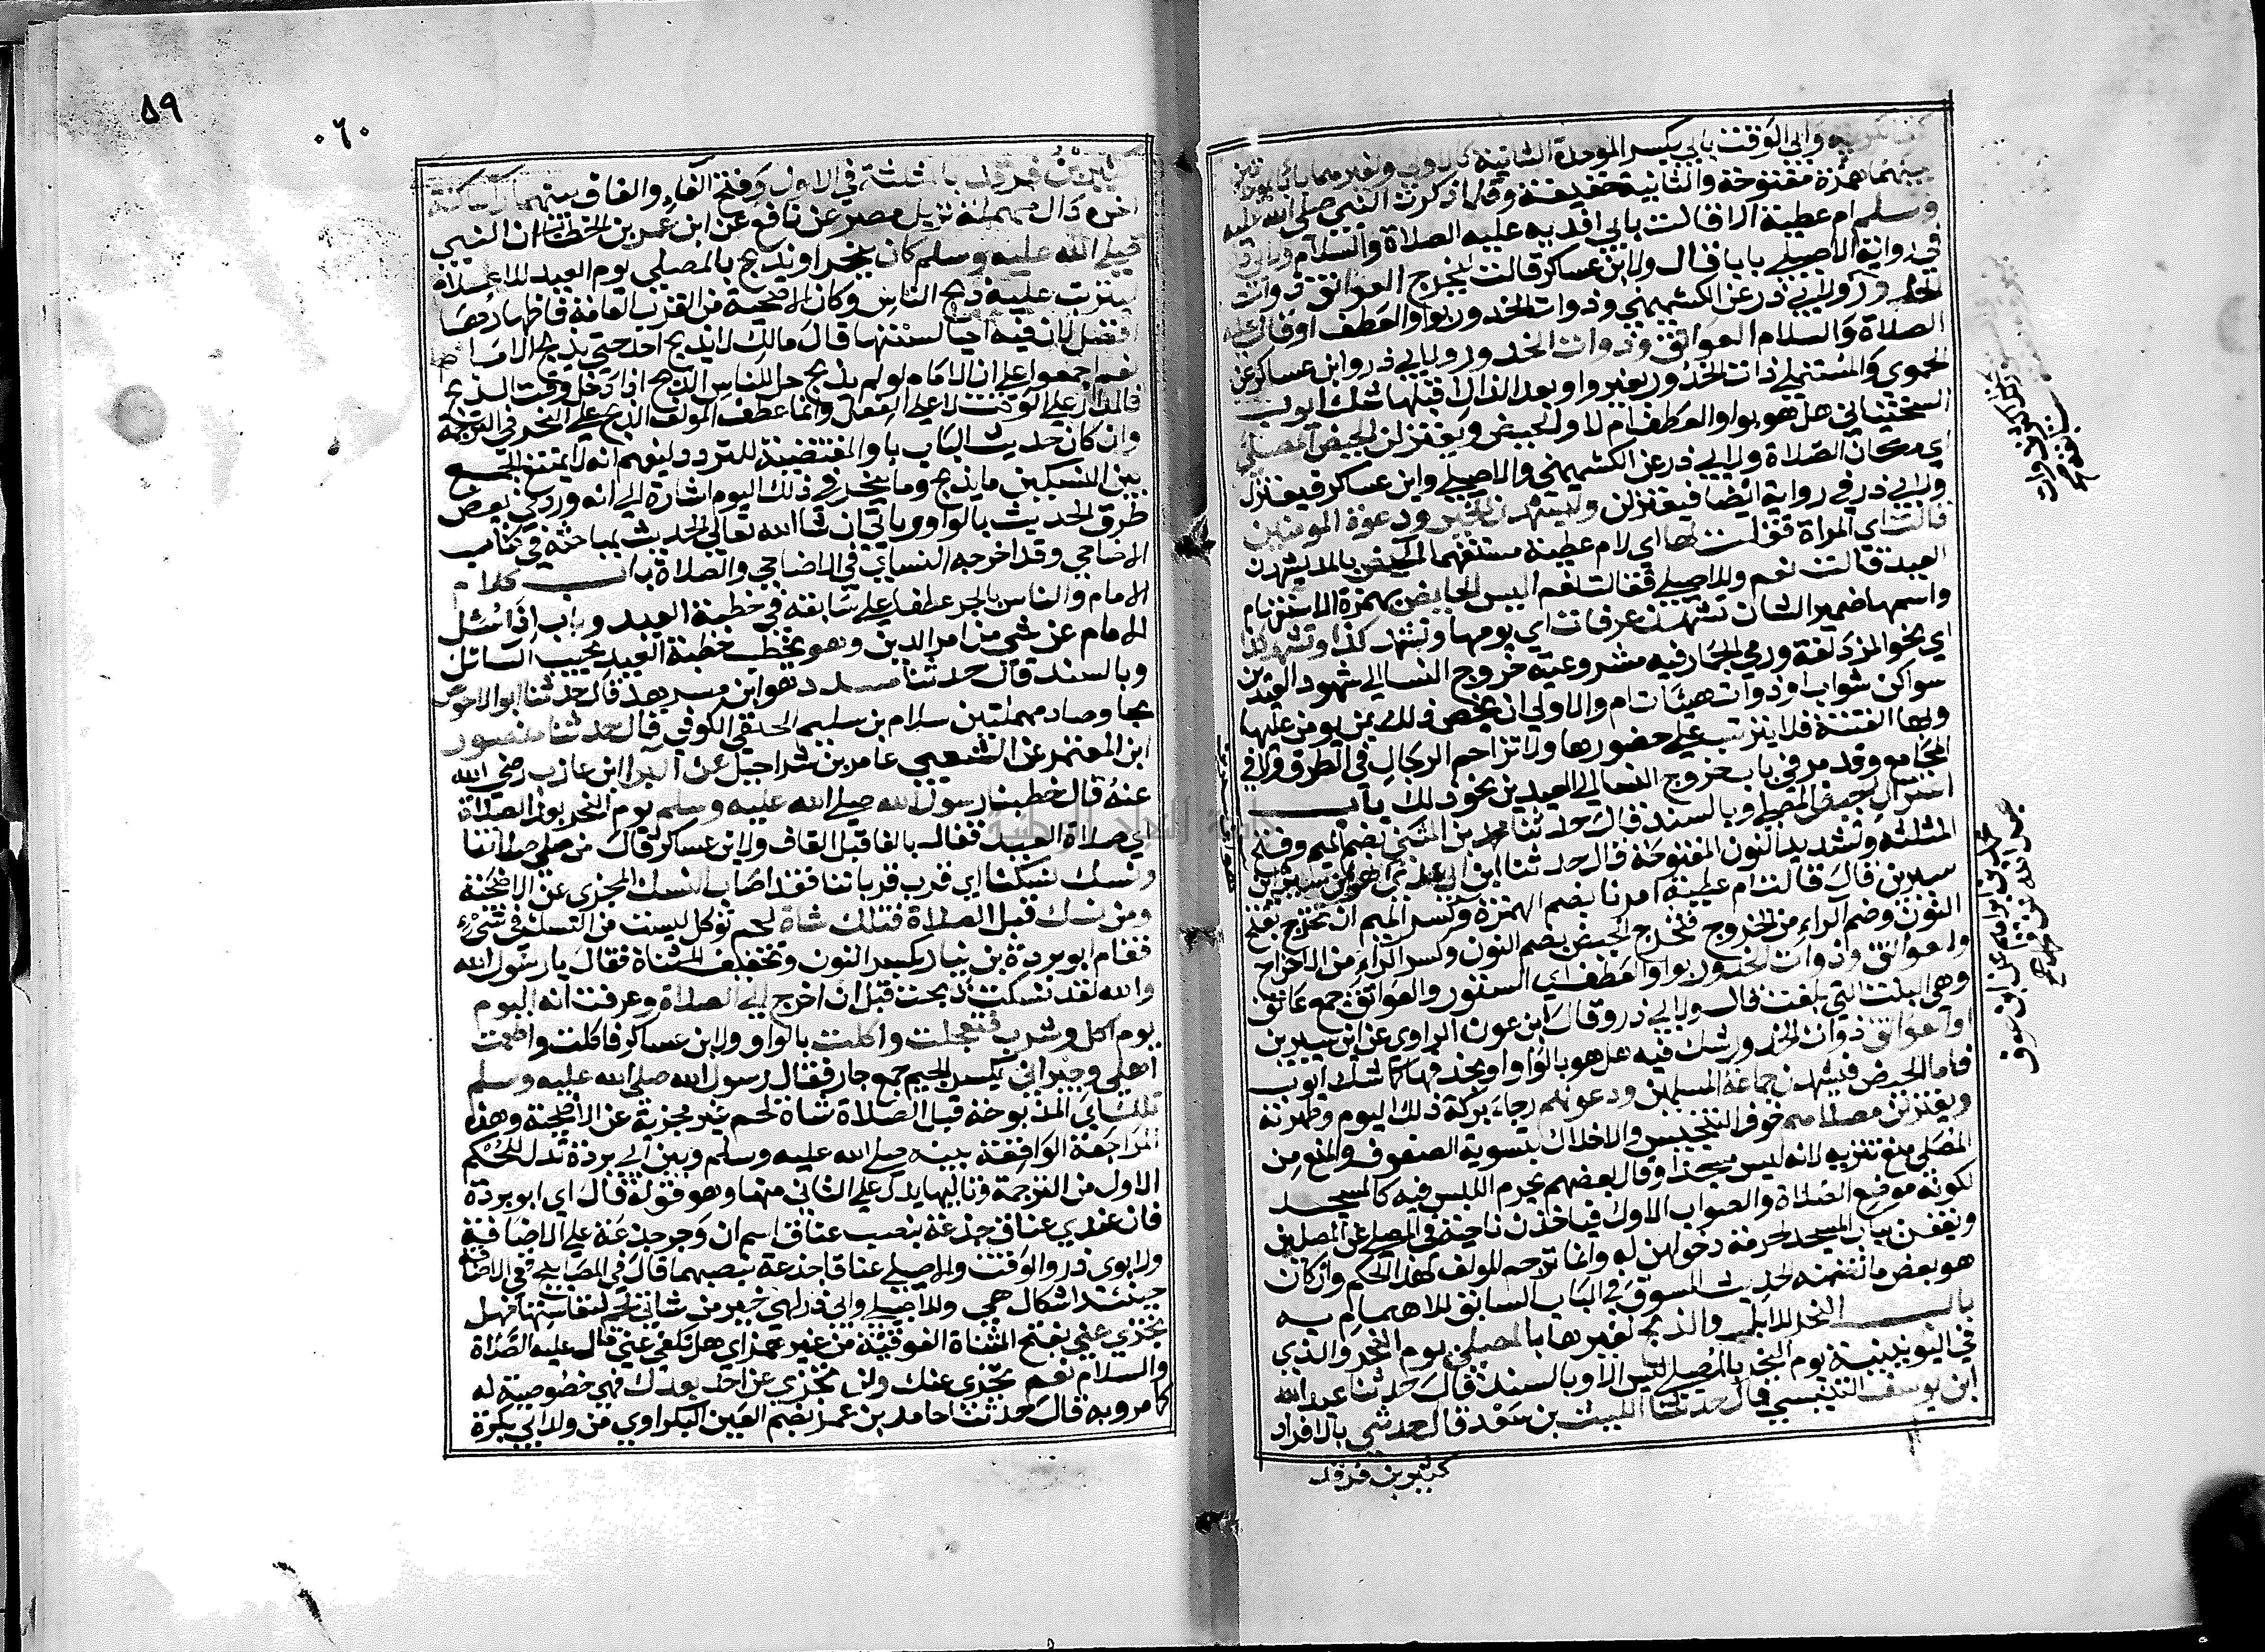 وابي الوقت بابي بكسر الموحدة الثانية كالاولى ولغيرهما بابا بموحدتين
بينهما همزة مفتوحة والثانية خفيفة وقلما ذكرت النبي صلى الله عليه
وسلم ام عطية الا قالت بابي افديه عليه الصلاة والسلام
في رواية الاصيلي بابا قال ولابن عساكر قالت ليخرج العواتق ذوات
الخدور ولابي ذر عن الكشميهني وذوات الخدور بواو العطف او قال عليه
الصلاة والسلام العواتق وذوات الخدور ولابي ذر وابن عساكر عن
الحموي والمستملي ذات الخدور بغير واو بعد الذال قبلها شك ايوب
السختياني هل هو بواو العطف ام لا والحيض ويعتزلن الحيض المصلى
اي مكان الصلاة ولابي ذر عن الكشميهني والاصيلي وابن عساكر فيعتزل
ولابي ذر في رواية ايضا فيعتزلن وليشهدن الخير ودعوة المومنين
قالت اي المراة فقلت لها اي لام عطية مستفهما الحيض بالمد يشهدن
العيد قالت نعم وللاصيلي فقالت نعم اليس الحايض بهمزة الاستفهام
واسمها ضمير الشان تشهد عرفات اي يومها وتشهد كذا وتشهد كذا
اي نحو المزدلفة ورمي الجمار فيه مشروعية خروج النسا الى شهود العيدين
سواكن شواب او ذوات هيئات ام والاولى ان يخص ذلك بمن يومن عليها
وبها الفتنة فلا يترتب على حضورها ولا تزاحم الرجال في الطرق ولا في
المجامع وقد مر في باب خروج النسا الى العيدين نحو ذلك باب
اعتزال الحيض المصلى وبالسند قال حدثنا محمد بن المثنى بضم الميم وفتح
المثلثة وتشديد النون المفتوحة قال حدثنا ابن ابي عدي
سيرين قال قالت ام عطية امرنا بضم الهمزة وكسر الميم ان نخرج بفتح
النون وضم الراء من الخروج فنخرج الحيض بضم النون وكسر الراء من الاخراج
والعواتق وذوات الخدور بواو العطف اي الستور والعواتق جمع عاتق
وهي البنت التي بلغت قال ولابي ذر وقال ابن عون الراوي عن ابن سيرين
او العواتق ذوات الخدور شك فيه هل هو بالواو او بحذفها كما شك ايوب
فاما الحيض فيشهدن جماعة المسلمين ودعوتهم رجاء بركة ذلك اليوم وطهرته
ويعتزلن مصلاهم خوف التنجيس والاخلال بتسوية الصفوف والمنع من
المصلى منع تنزيه لانه ليس مسجدا وقال بعضهم يحرم اللبس فيه كالمسجد
لكونه موضع الصلاة والصواب الاول فياخذن ناحية في المصلى عن المصلين
ويقفن بباب المسجد لحرمة دخولهن له وانما ترجم المولف لهذا الحكم وان كان
هو بعض ما تضمنه الحديث المسوق في الباب السابق للاهتمام به
باب النحر للابل والذبح لغيرها بالمصلى يوم النحر والذي
في اليونينية يوم النحر بالمصلى ليس الا وبالسند قال حدثنا عبد الله
ابن يوسف التنيسي قال حدثنا الليث بن سعد قال حدثني بالافراد
كثير بن فرقد
٥٩
٠٦٠
كثير بن فرقد بالمثلثة في الاول وفتح الفاء والقاف بينهما راء ساكنة
اخره دال مهملة نزيل مصر عن نافع عن ابن عمر بن الخطاب ان النبي
صلى الله عليه وسلم كان ينحر او يذبح بالمصلى يوم العيد للاعلام
ليترتب عليه ذبح الناس وكان الاضحية من القرب العامة فاظهارها
افضل لان فيه احيا لسنتها قال مالك لا يذبح احد حتى يذبح الامام
نعم اجمعوا على ان الامام لو لم يذبح حل للناس الذبح اذا دخل وقت الذبح
فالمدار على الوقت لا على الفعل وانما عطف المولف الذبح على النحر في الترجمة
وان كان حديث الباب باو المقتضية للتردد ليفهم انه لا يمتنع الجمع
بين النسكين ما يذبح وما ينحر في ذلك اليوم اشارة الى انه ورد في بعض
طرق الحديث بالواو وياتي ان شا الله تعالى الحديث بمباحثه في كتاب
الاضاحي وقد اخرجه النساي في الاضاحي والصلاة باب كلام
الامام والناس بالجر عطفا على سابقه في خطبة العيد وباب اذا سئل
الامام عن شي من امر الدين وهو يخطب خطبة العيد يجيب السائل
وبالسند قال حدثنا مسدد هو ابن مسرهد قال حدثنا ابو الاحوص
بحا وصاد مهملتين سلام بن سليم الحنفي الكوفي قال حدثنا منصور
ابن المعتمر عن الشعبي عامر بن شراحيل عن البرا ابن عازب رضي الله
عنه قال خطبنا رسول الله صلى الله عليه وسلم يوم النحر بعد الصلاة
اي صلاة العيد فقال بالفا قبل القاف ولابن عساكر قال من صلى صلاتنا
ونسك نسكنا اي قرب قرباننا فقد اصاب النسك المجزي عن الاضحية
ومن نسك قبل الصلاة فتلك شاة لحم توكل ليست من النسك في شيء
فقام ابو بردة بن نيار بكسر النون وتخفيف المثناة فقال يا رسول الله
والله لقد نسكت ذبحت قبل ان اخرج الى الصلاة وعرفت انه اليوم
يوم اكل وشرب فتعجلت واكلت بالواو ولابن عساكر فاكلت واطعمت
اهلي وجيراني بكسر الجيم جمع جار فقال رسول الله صلى الله عليه وسلم
تلك اي المذبوحة قبل الصلاة شاة لحم غير مجزية عن الاضحية وهذه
المراجعة الواقعة بينه صلى الله عليه وسلم وبين ابي بردة تدل للحكم
الاول من الترجمة وتاليها يدل على الثاني منها وهو قوله قال اي ابو بردة
فان عندي عناق جذعة بنصب عناق اسم ان وجر جذعة على الاضافة
ولابوي ذر والوقت والاصيلي عناقا جذعة بنصبهما قال في المصابيح ففي الاضافة
حينئذ اشكال هي وللاصيلي وابي ذر لهي خير من شاتي لحم لنفاستها فهل
تجزي عني بفتح المثناة الفوقية من غير همز اي هل تكفي عني قال عليه الصلاة
والسلام نعم تجزي عنك ولن تجزي عن احد بعدك فهي خصوصية له
كما مر وبه قال حدثنا حامد بن عمر بضم العين البكراوي من ولد ابي بكرة